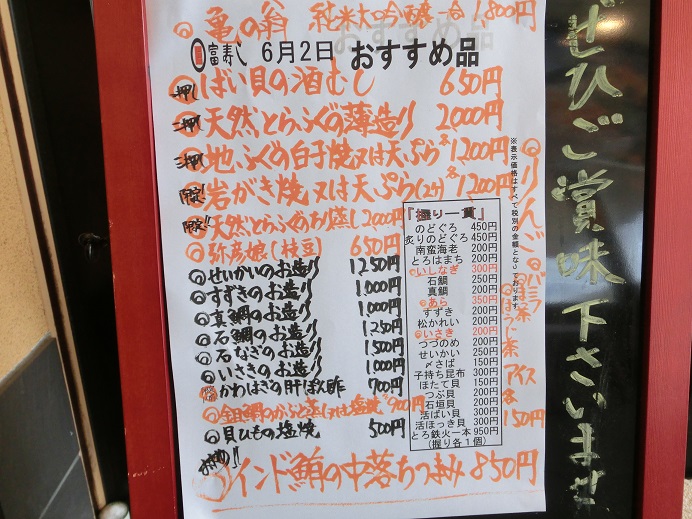 ◎亀の翁 純米大吟醸一合 1,800円
富寿し 6月2日 おすすめ品
一押し ◎ばい貝の酒むし 650円
二押し ◎天然とらふぐの薄造り 2000円
三押し ◎地ふぐの白子焼又は天ぷら 各1200円
限定! ◎岩がき焼又は天ぷら(2ヶ) 1200円
限定!! ◎天然とらふぐの酒蒸し 2000円
◎弥彦娘(枝豆) 650円
◎せいかいのお造り 1250円
◎すずきのお造り 1,000円
◎真鯛のお造り 1,000円
◎石鯛のお造り 1250円
◎石なぎのお造り 1,500円
◎いさきのお造り 1,000円
◎かわはぎの肝ぽん酢 700円
◎金目鯛のかぶと蒸し又は塩焼 900円
◎貝ひもの塩焼 500円
お勧め!! ◎インド鮪の中落ちつまみ 850円
『握り一貫』
のどぐろ 450円
炙りのどぐろ 450円
南蛮海老 200円
とろはまち 200円
◎いしなぎ 300円
石鯛 250円
真鯛 200円
◎あら 350円
すずき 200円
松かれい 200円
◎いさき 200円
つづのめ 200円
せいかい 250円
〆さば 150円
子持ち昆布 200円
ほたて貝 150円
つぶ貝 200円
石垣貝 200円
活ばい貝 300円
活ほっき貝 300円
とろ鉄火一本 950円
(握り各1個)
※表示価格はすべて税別の金額となっております。
◎りんご
◎バニラ
◎抹茶
◎ほうじ茶
アイス各150円
ぜひご賞味下さいませ